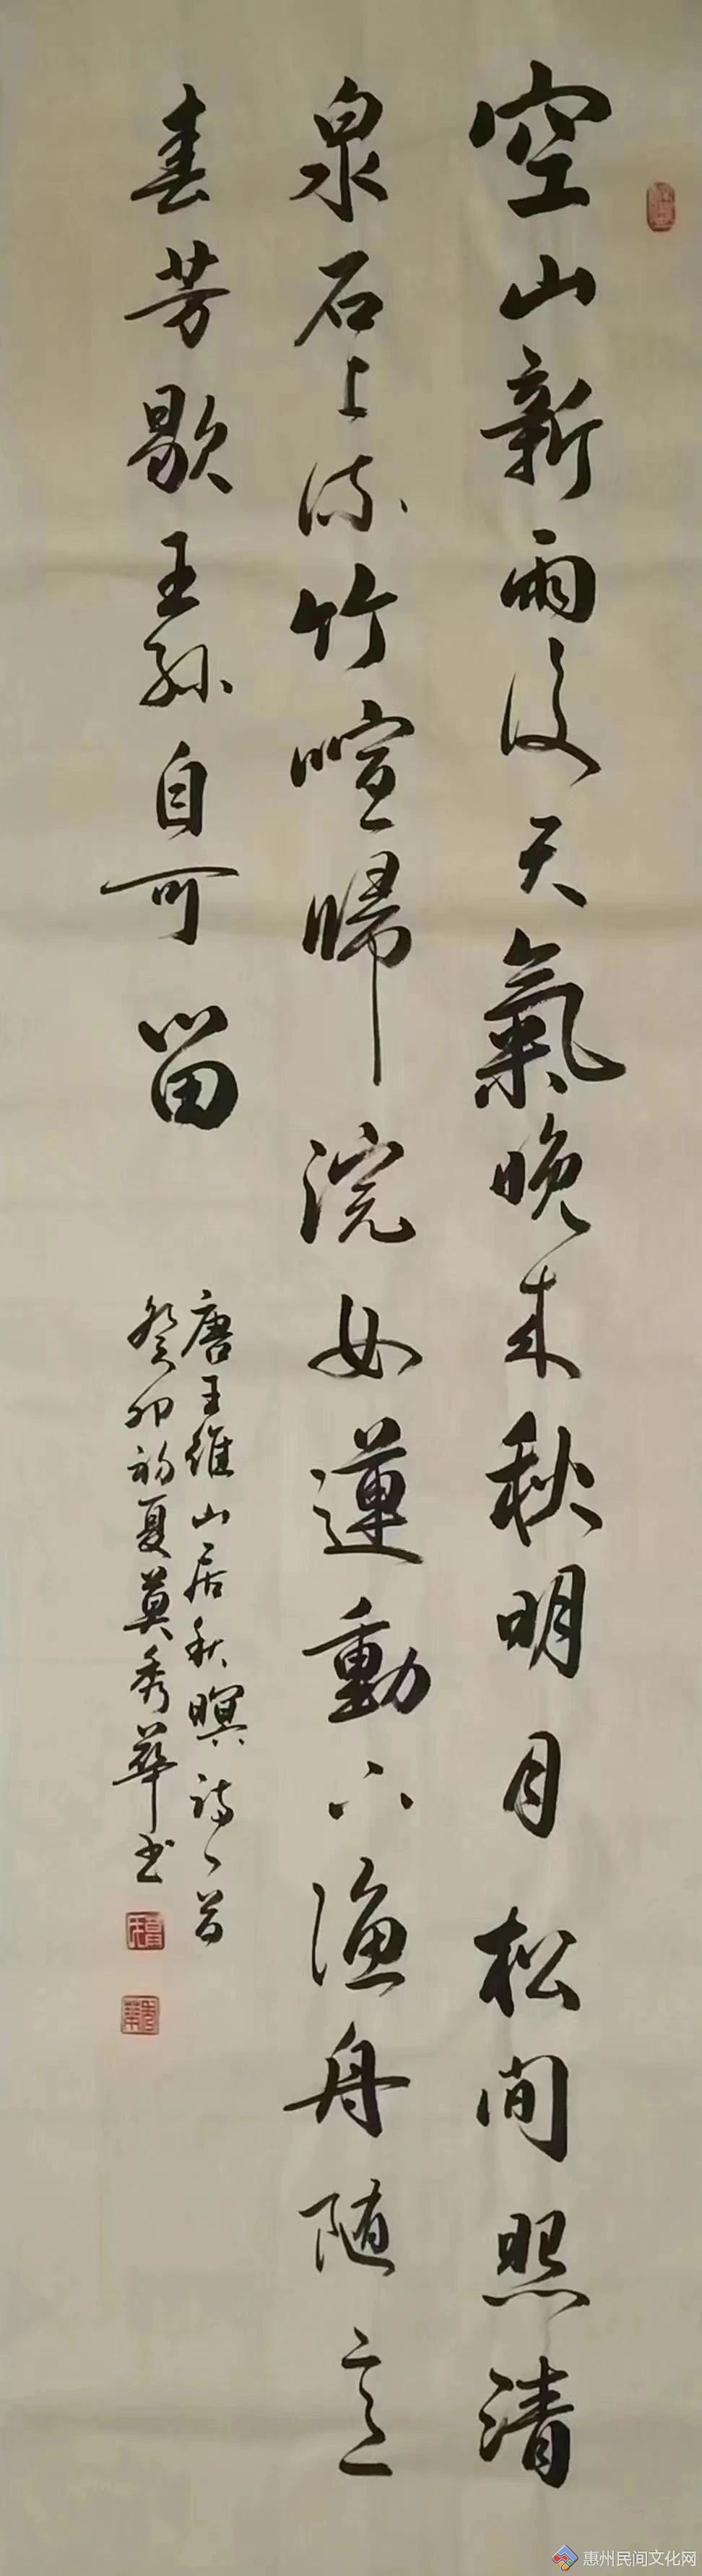 空山新雨後天氣晚來秋明月松間照清
泉石上流竹喧歸浣女蓮動下漁舟随意
春芳歇王孫自可留
唐王維山居秋暝詩一首
癸卯初夏莫秀華书
惠州民间文化网